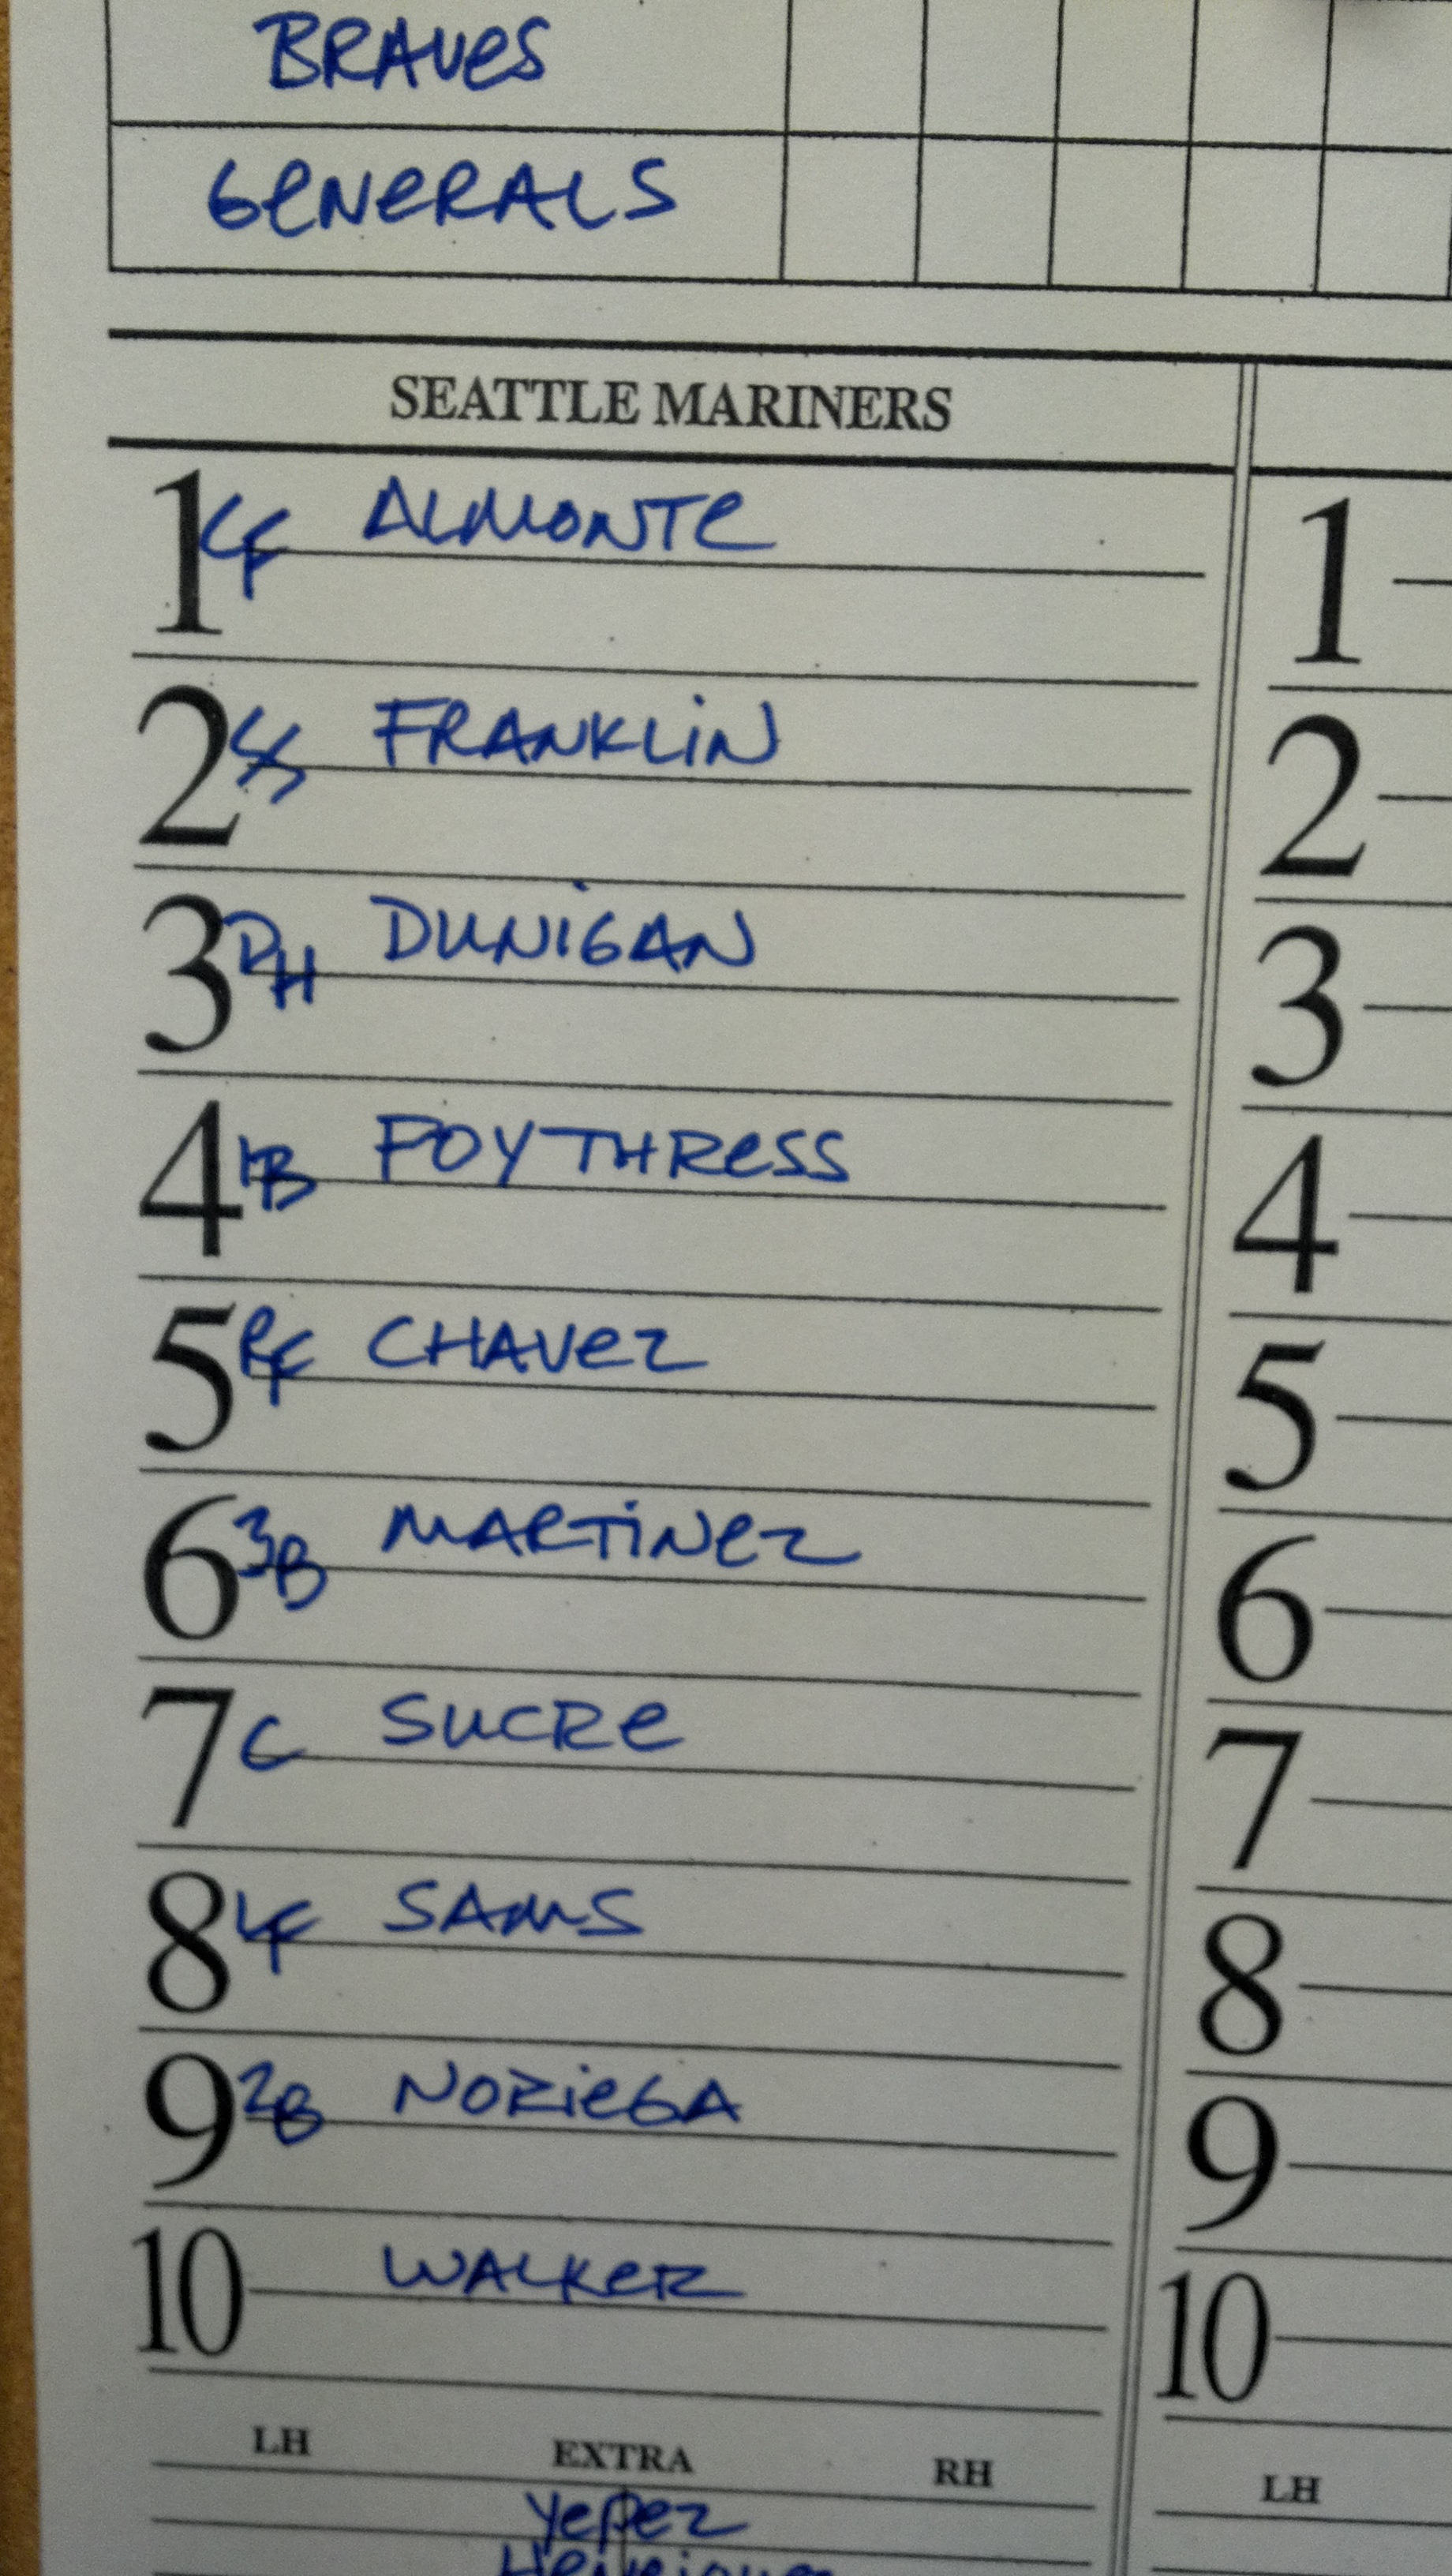 BRAVES
GENERALS
SEATTLE MARINERS
1 CF ALMONTE 1
2 SS FRANKLIN 2
3 DH DUNIGAN 3
4 1B POYTHRESS 4
5 RF CHAVEZ 5
6 3B MARTINEZ 6
7 C SUCRE 7
8 LF SAMS 8
9 2B NORIEGA 9
10 WALKER 10
LH EXTRA RH LH
Yepez